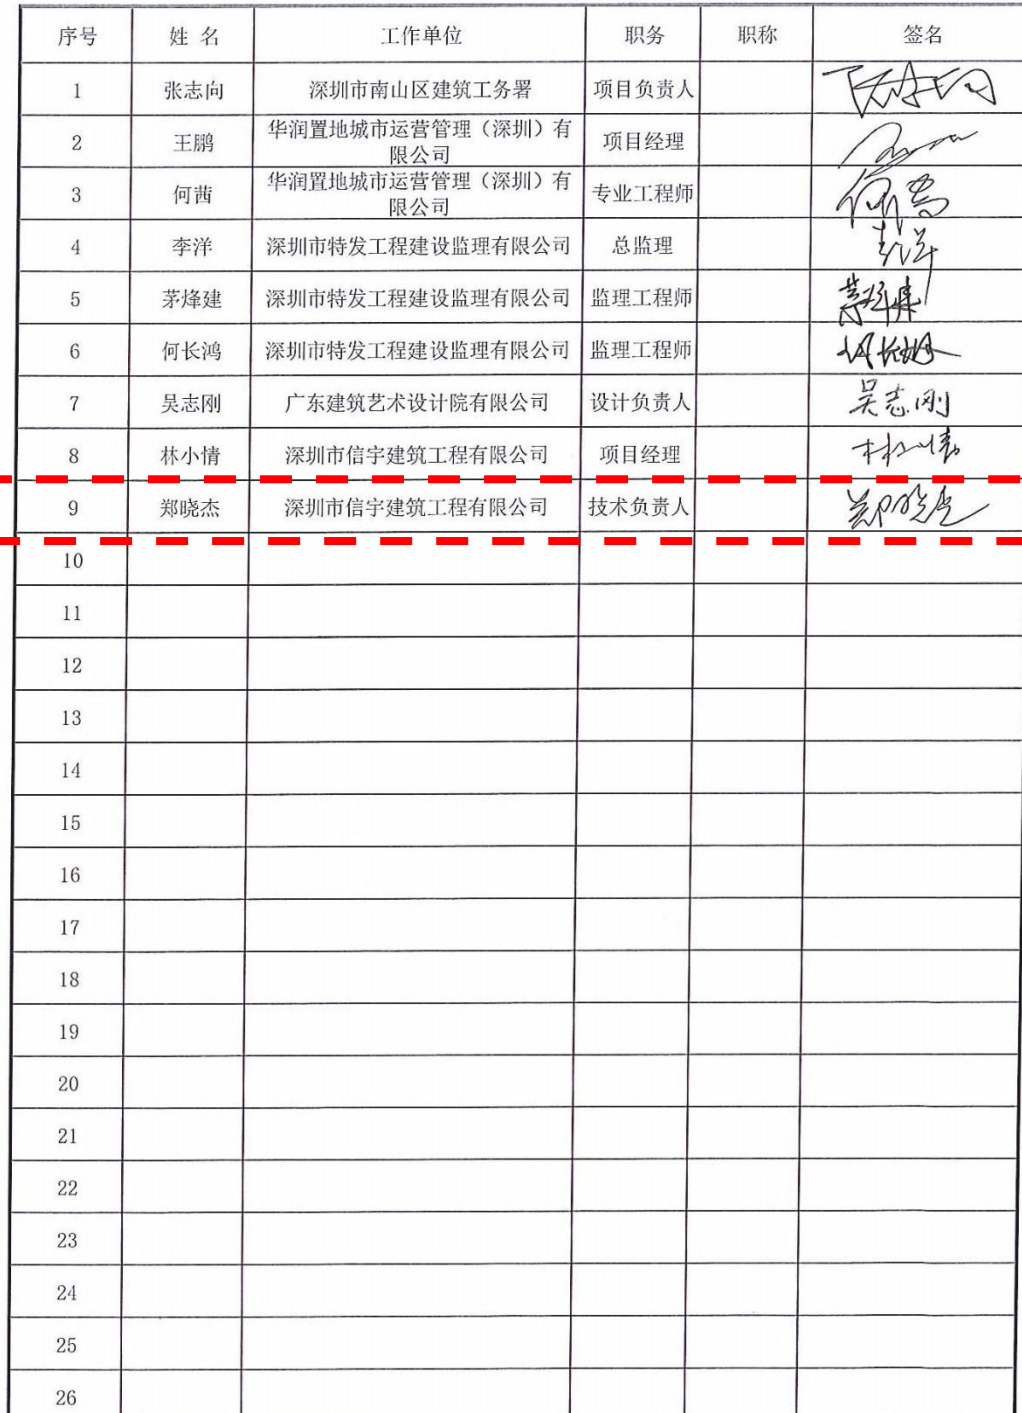 序号 姓 名 工作单位 职务 职称 签名
1 张志向 深圳市南山区建筑工务署 项目负责人
2 王鹏 华润置地城市运营管理（深圳）有
限公司 项目经理
3 何茜 华润置地城市运营管理（深圳）有
限公司 专业工程师 何茜
4 李洋 深圳市特发工程建设监理有限公司 总监理 李洋
5 茅烽建 深圳市特发工程建设监理有限公司 监理工程师 茅烽建
6 何长鸿 深圳市特发工程建设监理有限公司 监理工程师 何长鸿
7 吴志刚 广东建筑艺术设计院有限公司 设计负责人 吴志刚
8 林小情 深圳市信宇建筑工程有限公司 项目经理 林小情
9 郑晓杰 深圳市信宇建筑工程有限公司 技术负责人 郑晓杰
10
11
12
13
14
15
16
17
18
19
20
21
22
23
24
25
26